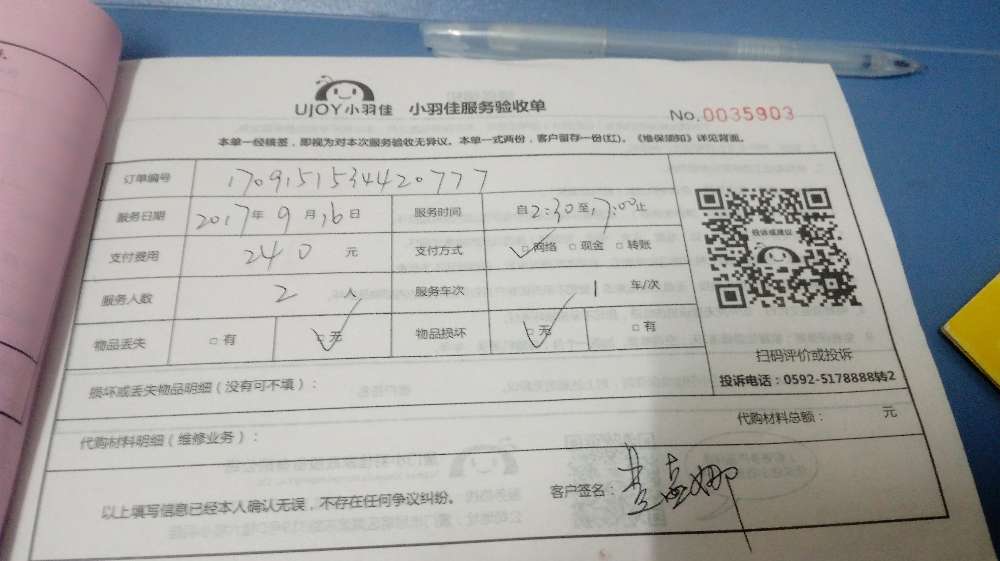 UJOY小羽佳 小羽佳服务验收单
No.0035903
本单一经核签，即视为对本次服务验收无异议。本单一式两份，客户留存一份(红)。《维保须知》详见背面。
订单编号 17091515344420777
服务日期 2017年9月16日 服务时间 自2:30至17:00止
投诉或建议
支付费用 240 元 支付方式 ☑网络 □现金 □转账
服务人数 2 人 服务车次 1 车/次
物品丢失 □有 ☑无 物品损坏 ☑无 □有
扫码评价或投诉
投诉电话：0592-5178888转2
损坏或丢失物品明细（没有可不填）：
代购材料明细（维修业务）： 代购材料总额： 元
以上填写信息已经本人确认无误，不存在任何争议纠纷。 客户签名：